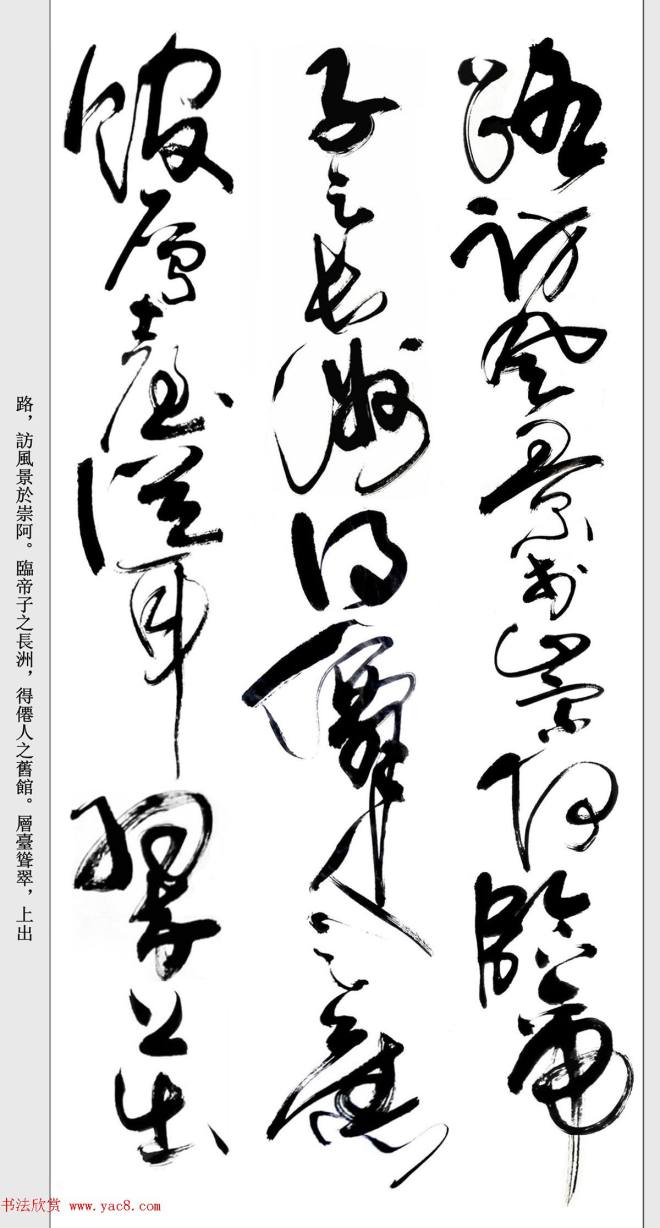 路訪風景於崇阿臨帝
子之長洲得僊人之舊
館層臺聳翠上出
路，訪風景於崇阿。臨帝子之長洲，得僊人之舊館。層臺聳翠，上出
书法欣赏 www.yac8.com